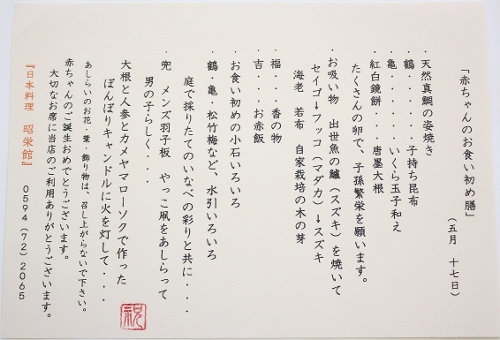 『赤ちゃんのお食い初め膳』
(五月 十七日)
・天然真鯛の姿焼き
・鶴・・・・・・子持ち昆布
・亀・・・・・・いくら玉子和え
・紅白鏡餅・・・唐墨大根
たくさんの卵で、子孫繁栄を願います。
・お吸い物 出世魚の鱸(スズキ)を焼いて
セイゴ→フッコ(マダカ)→スズキ
海老 若布 自家栽培の木の芽
・福・・・香の物
・吉・・・お赤飯
・お食い初めの小石いろいろ
・鶴・亀・松竹梅など、水引いろいろ
庭で採りたてのいなべの彩りと共に・・・
・兜 メンズ羽子板 やっこ凧をあしらって
男の子らしく・・・
大根と人参とカメヤマローソクで作った
ぼんぼりキャンドルに火を灯して・・・
あしらいのお花・葉・飾り物は、召し上がらないで下さい。
赤ちゃんのご誕生おめでとうございます。
大切なお席に当店のご利用ありがとうございます。
『日本料理 昭栄館』 0594(72)2065
祝